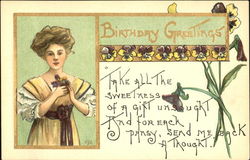 BIRTHDAY GREETINGS
TAKE ALL THE
SWEETNESS
OF A GIFT UNSOUGHT
AND FOR EACH
PANSY, SEND ME BACK
A THOUGHT.